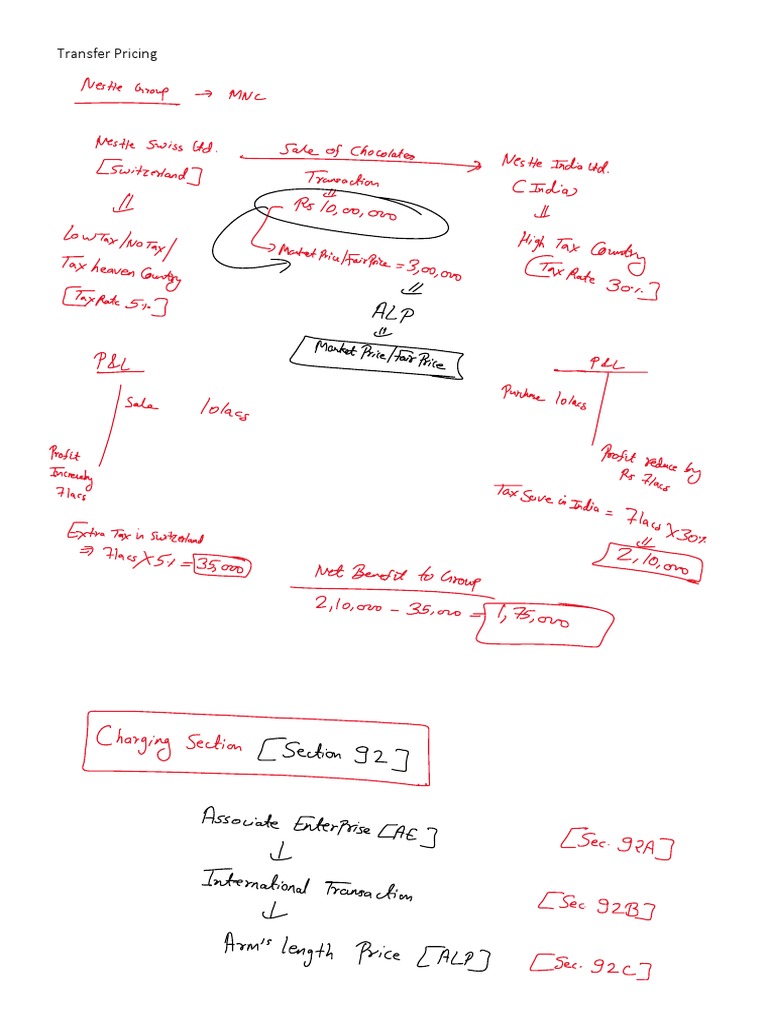 Transfer Pricing
Nestle Group → MNC
Nestle Swiss Ltd.
[Switzerland]
⇓
Low Tax/No Tax/
Tax heaven Country
[Tax Rate 5%]
Sale of Chocolates
Transaction
⇓
Rs 10,00,000
→ Market Price/Fair Price = 3,00,000
⇓
ALP
⇓
Market Price/Fair Price
Nestle India Ltd.
(India)
⇓
High Tax Country
[Tax Rate 30%]
P&L
Sale 10lacs
Profit
Increase by
7lacs
P&L
Purchase 10lacs
Profit reduce by
Rs 7lacs
Extra Tax in Switzerland
⇒ 7lacs X 5% = 35,000
Tax Save in India = 7lacs X 30%
⇓
2,10,000
Net Benefit to Group
2,10,000 - 35,000 = 1,75,000
Charging Section [Section 92]
Associate Enterprise [AE] [Sec. 92A]
↓
International Transaction [Sec 92B]
↓
Arm's length Price [ALP] [Sec. 92C]